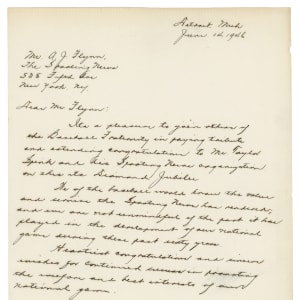 Detroit Mich
June 14, 1946
Mr A. J. Flynn
The Sporting News
Fifth Ave
New York N.Y.
Dear Mr Flynn:
Its a pleasure to join others of
the Baseball Fraternity in paying tribute
and extending congratulations to Mr Taylor
Spink and his Sporting News organization
on this its Diamond Jubilee
We of the baseball world know the value
and service the Sporting News has rendered,
and we are not unmindful of the part it has
played in the development of our national
game during these past sixty years
Heartiest congratulations and sincere
wishes for continued success in promoting
the welfare and best interests of our
national game.